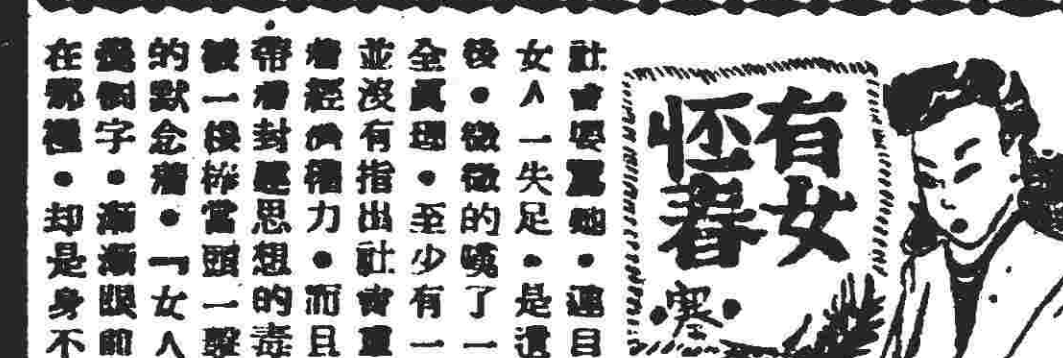 有女
怀春
·寒·
社會要罵她·連目
女人一失足·是遺
後·微微的嘆了一
全真理·至少有一
並沒有指出社會重
着經濟權力·而且
帶着封建思想的毒
被一當頭一擊
的默念着·「女人
幾個字·漸漸眼前
在那裡·却是身不